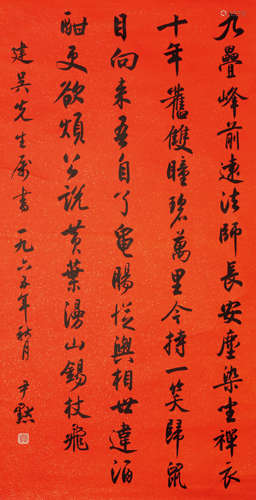 九疊峰前遠法師長安塵染坐禪衣
十年舊雙瞳碧萬里今持一笑歸鼠
目向來吾自了龜腸從與相世違酒
酣更欲煩公說黃葉漫山錫杖飛
建吳先生属書 一九六五年秋月 尹默